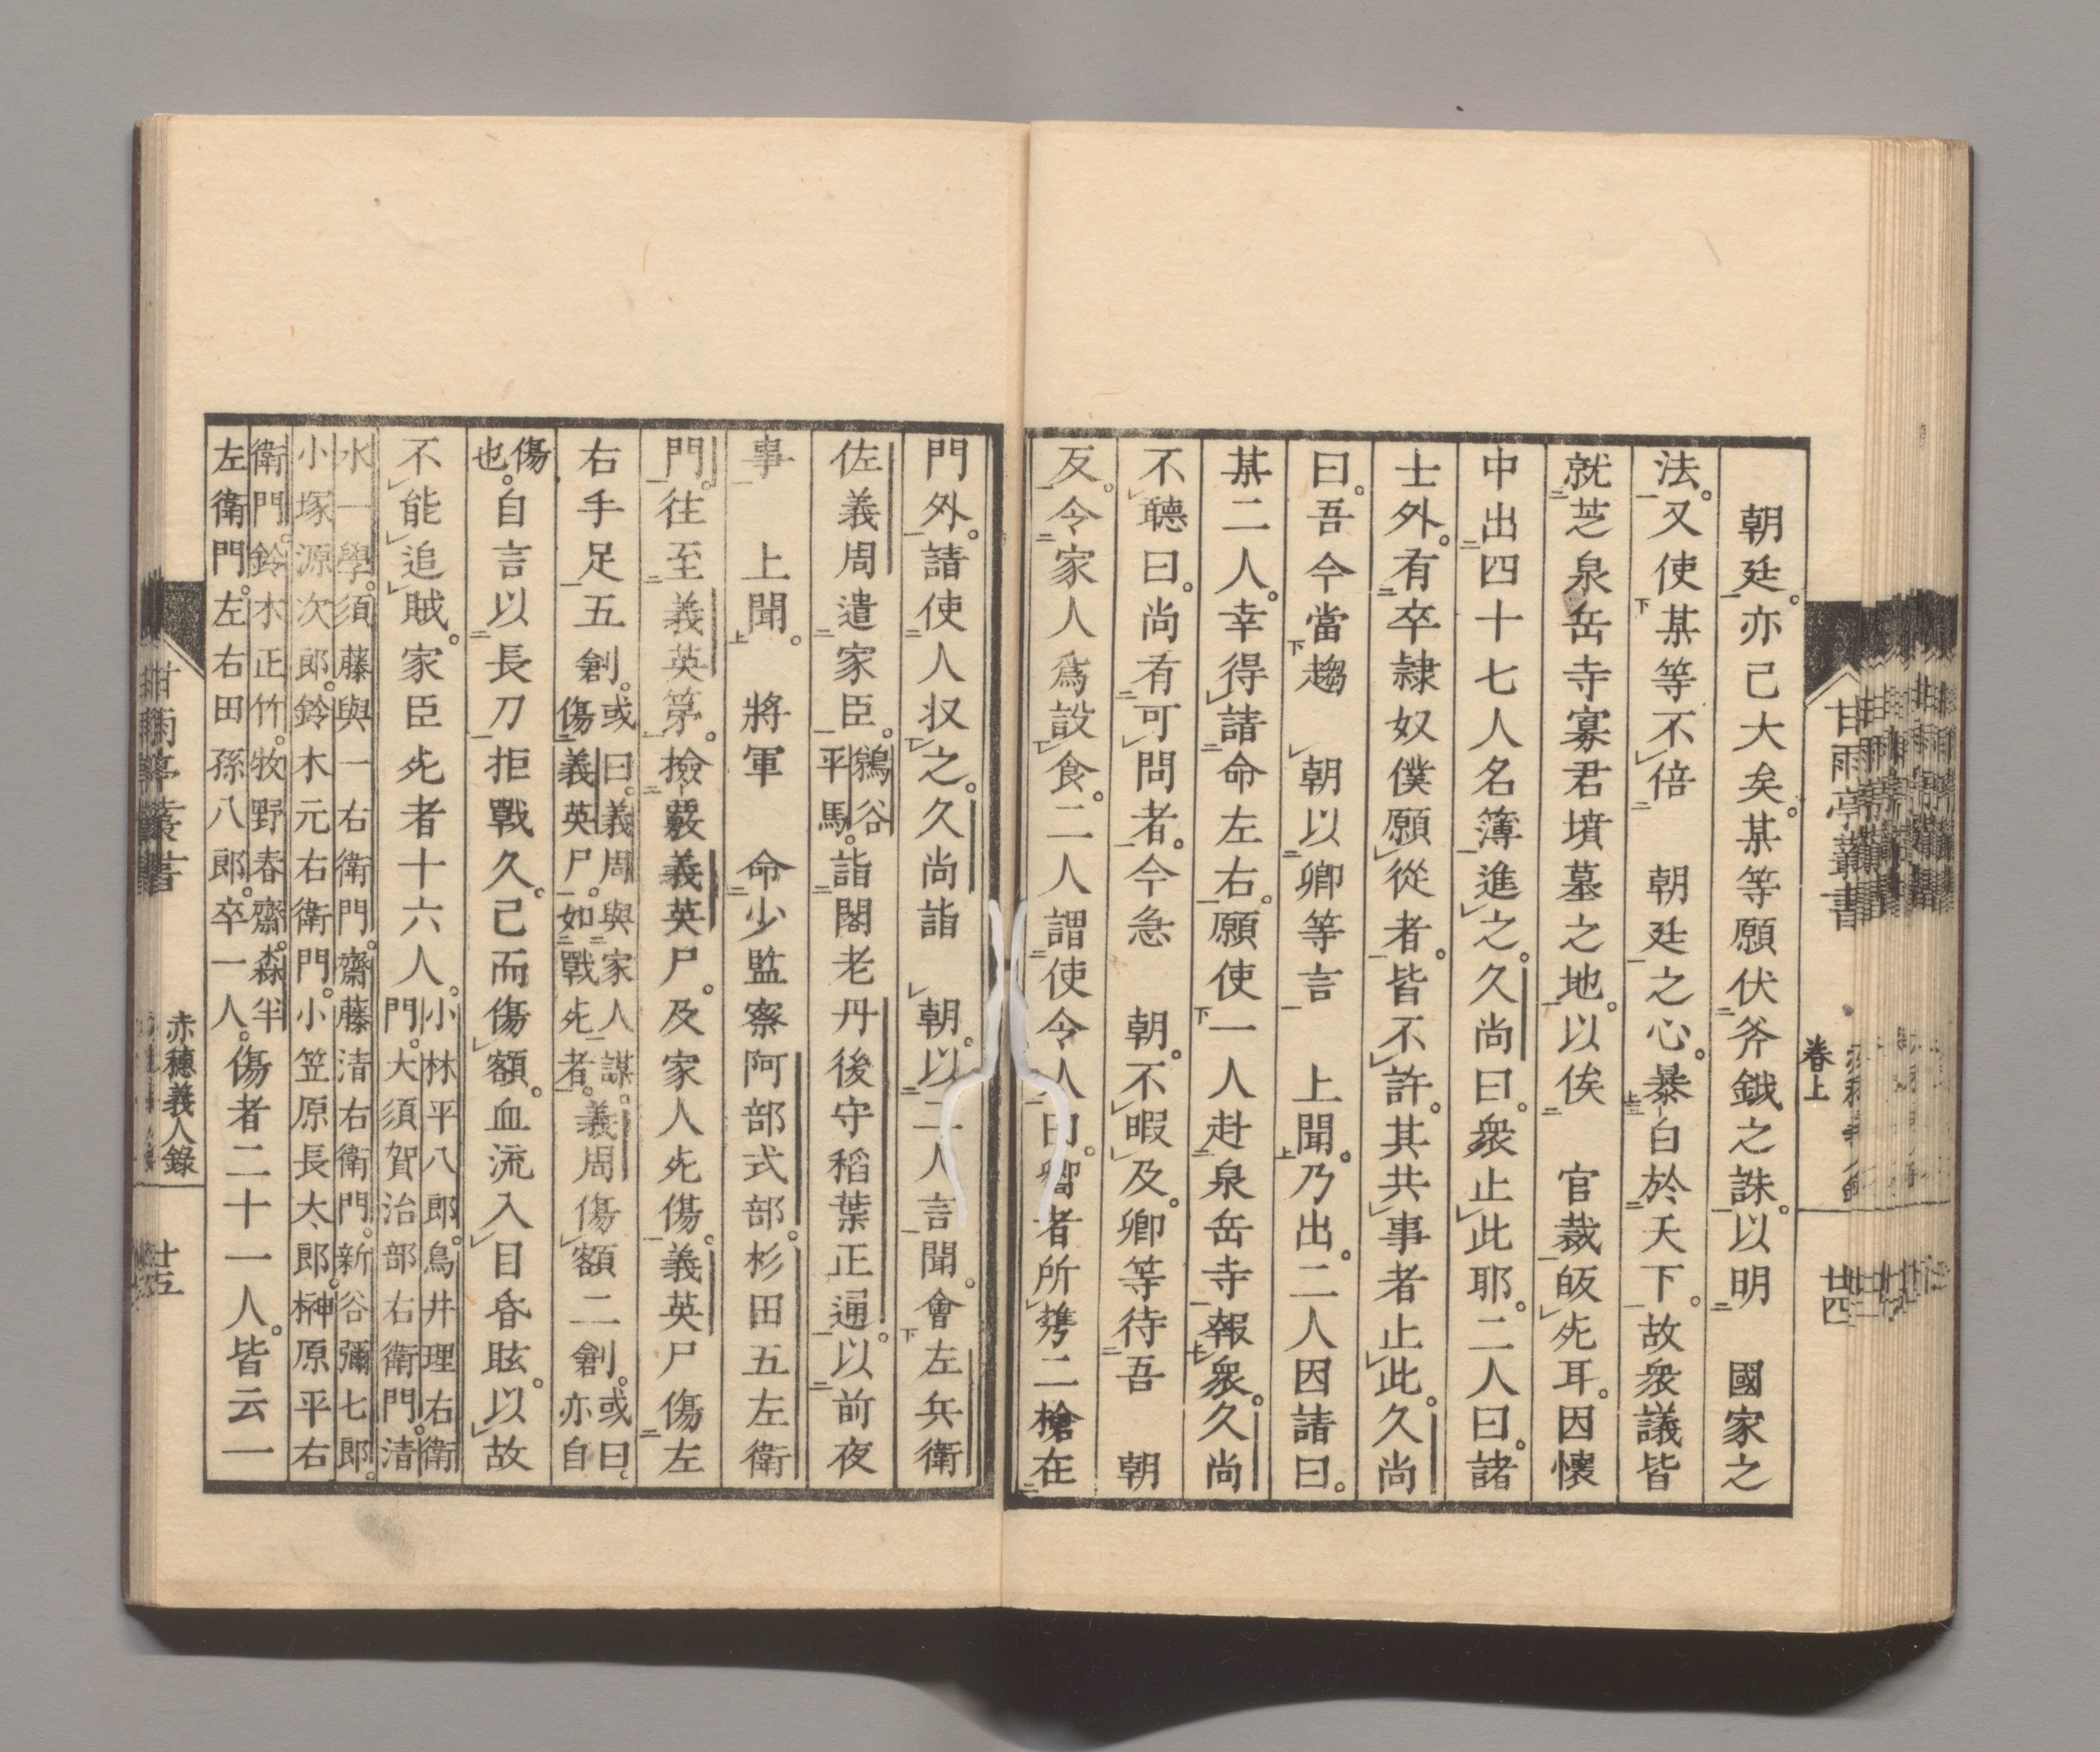 甘雨亭叢書
卷上
廿四
朝廷。亦已大矣。某等願伏斧鉞之誅。以明 國家之
法。又使某等不倍 朝廷之心。暴白於天下。故衆議皆
就芝泉岳寺寡君墳墓之地。以俟 官裁皈死耳。因懷
中出四十七人名簿進之。久尚曰。衆止此耶。二人曰。諸
士外。有卒隷奴僕願從者。皆不許。其共事者止此。久尚
曰。吾今當趨 朝以卿等言 上聞。乃出。二人因請曰。
某二人。幸得請命左右。願使一人赴泉岳寺報衆。久尚
不聽曰。尚有可問者。今急 朝。不暇及。卿等待吾 朝
反。令家人爲設食。二人謂使令人曰。嚮者所携二槍在
門外。請使人收之。久尚詣 朝。以二人言聞。會左兵衛
佐義周遣家臣。鵜谷平馬。詣閣老丹後守稻葉正通。以前夜
事 上聞。 將軍 命少監察阿部式部。杉田五左衛
門。往至義英第。撿覈義英尸。及家人死傷。義英尸傷左
右手足五創。或曰。義周與家人謀。傷義英尸。如戰死者。義周傷額二創。或曰。亦自
傷也。自言以長刀拒戰久。已而傷額。血流入目昏眩。以故
不能追賊。家臣死者十六人。小林平八郎。鳥井理右衛門。大須賀治部右衛門。清
水一學。須藤與一右衛門。齋藤清右衛門。新谷彌七郎。
小塚源次郎。鈴木元右衛門。小笠原長太郎。榊原平右
衛門。鈴木正竹。牧野春齋。森半
左衛門。左右田孫八郎。卒一人。傷者二十一人。皆云一
甘雨亭叢書
赤穗義人錄
廿五